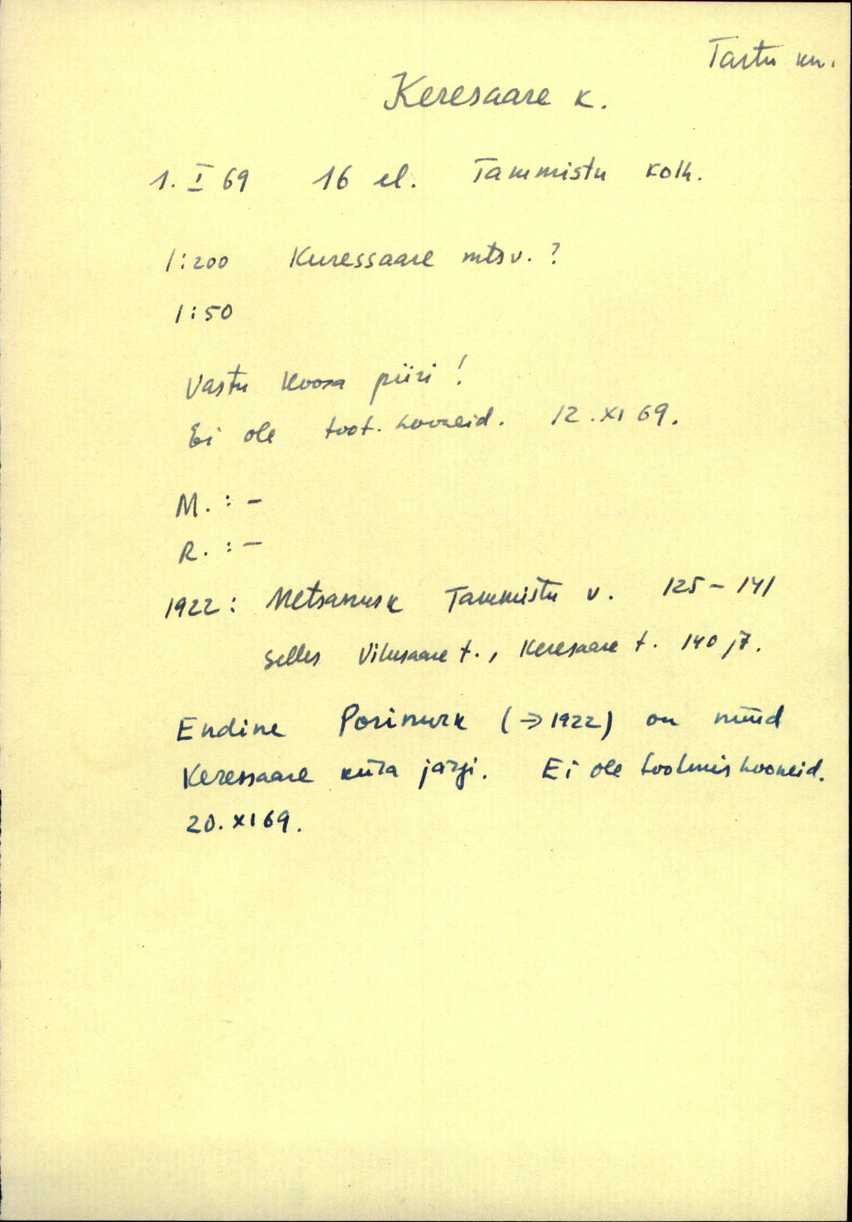 Tartu kn.
Keresaare k.
1. I 69 16 el. Tammistu kolh.
1:200 Kuressaare mtsv. ?
1:50
Vastu Koosa piiri !
Ei ole toot. hooneid. 12. XI 69.
M. : –
R. : –
1922 : Metsanurk Tammistu v. 125 – 141
Selles Vilusaare t., Keresaare t. 140 j7.
Endine Porinurk (→ 1922) on nüüd
Keressaare küla järgi. Ei ole tootmishooneid.
20. XI 69.